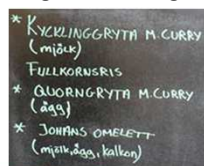 * KYCKLINGGRYTA M. CURRY
(mjölk)
FULLKORNSRIS
* QUORNGRYTA M. CURRY
(ägg)
* JOHANS OMELETT
(mjölk, ägg, kalkon)